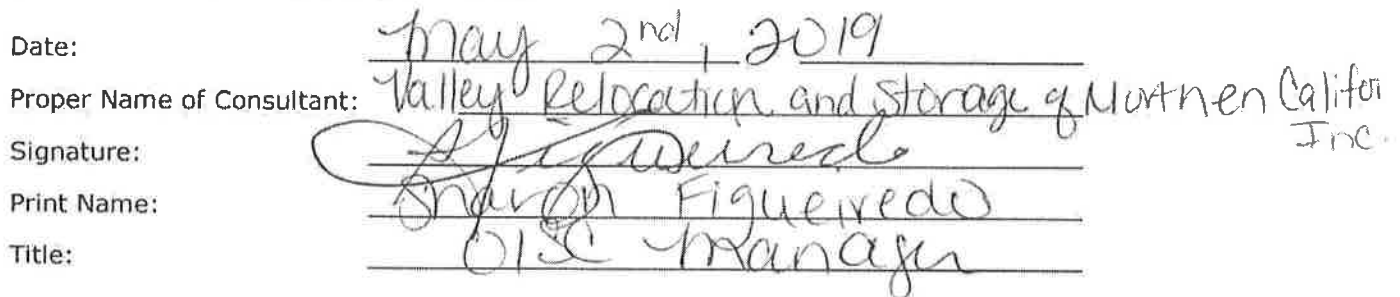 Date: May 2nd, 2019
Proper Name of Consultant: Valley Relocation and Storage of Northen Califor
Inc.
Signature: S Figueiredo
Print Name: Sharon Figueiredo
Title: Manager